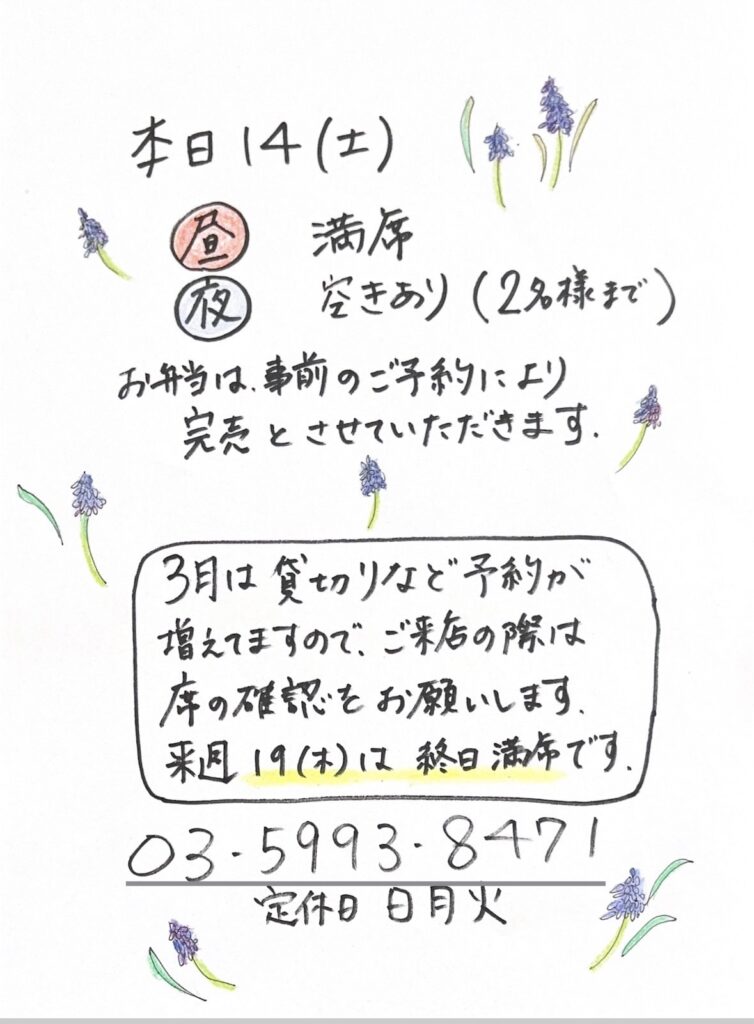 本日14(土)
昼 満席
夜 空きあり(2名様まで)
お弁当は、事前のご予約により
完売とさせていただきます.
3月は貸切りなど予約が
増えてますので、ご来店の際は
席の確認をお願いします.
来週19(木)は終日満席です.
03-5993-8471
定休日 日月火